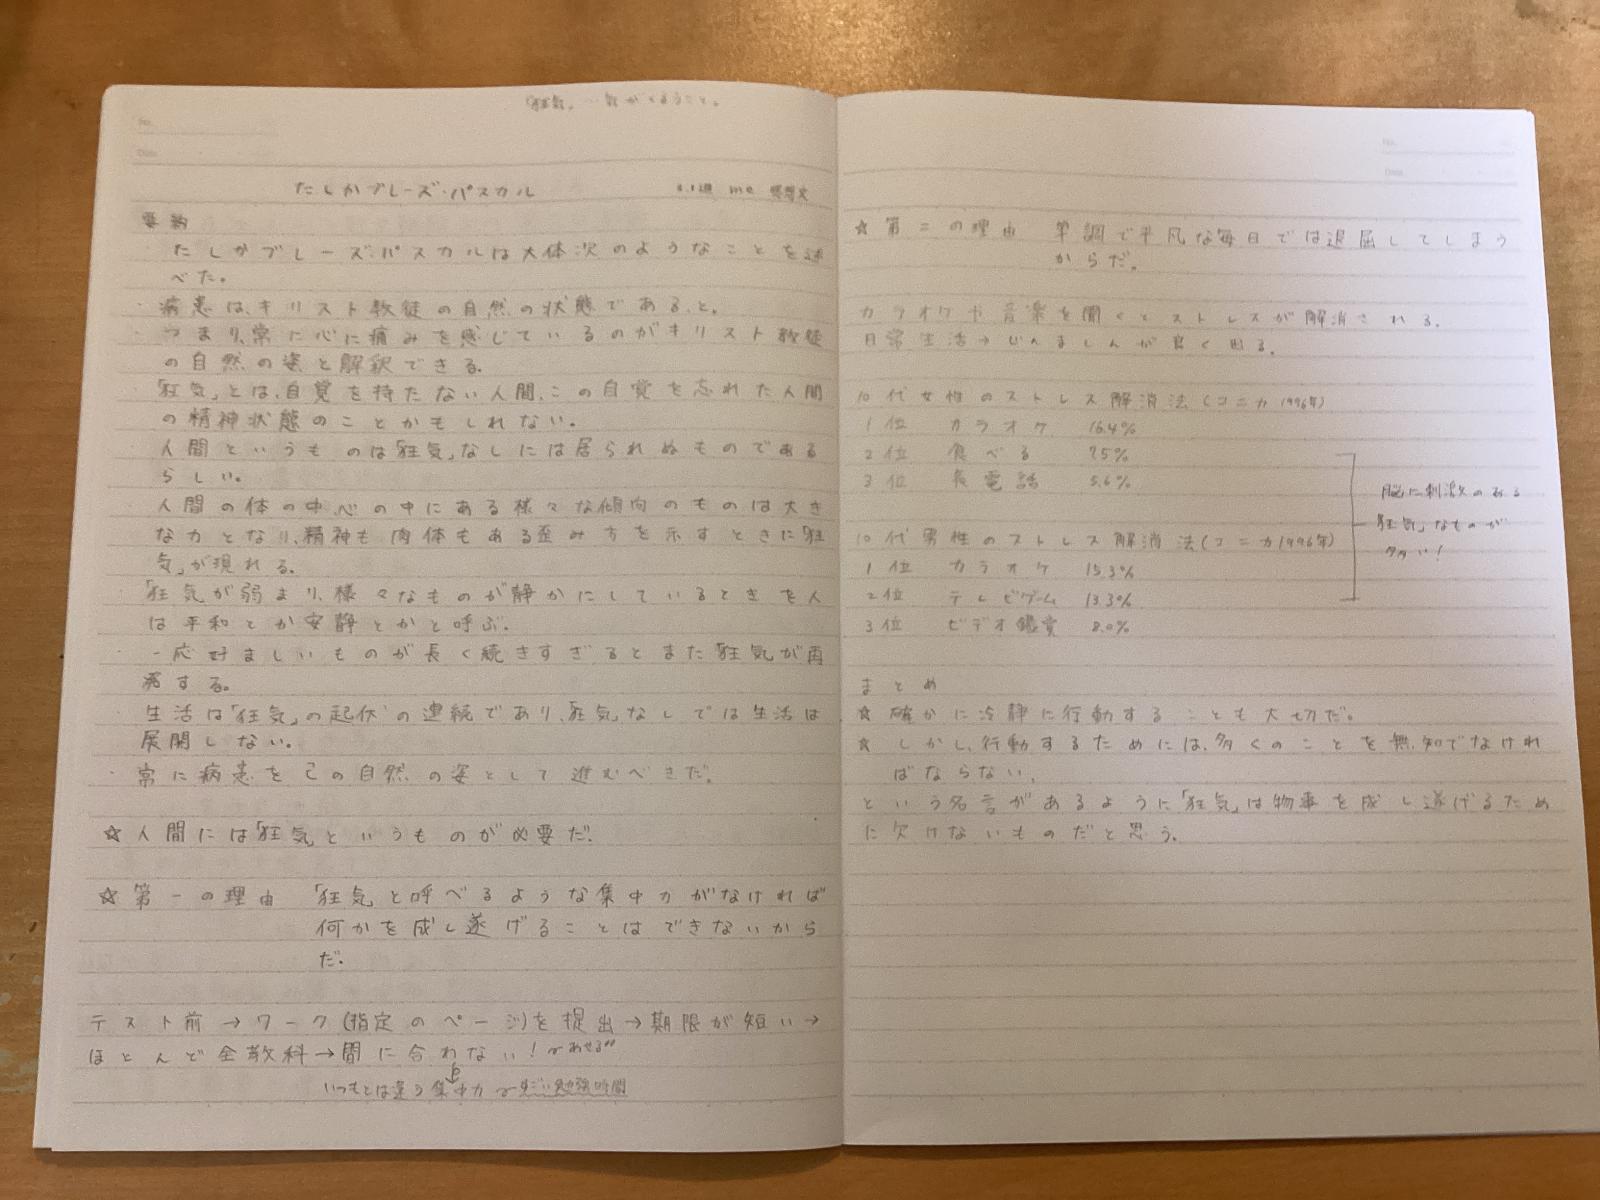 「狂気」…気がくるうこと。
No.
Date
たしかブレーズ・パスカル me 感想文
要約
たしかブレーズ・パスカルは大体次のようなことを述
べた。
・病患は、キリスト教徒の自然の状態であると。
・つまり、常に心に痛みを感じているのがキリスト教徒
の自然の姿と解釈できる。
・「狂気」とは、自覚を持たない人間、この自覚を忘れた人間
の精神状態のことかもしれない。
・人間というものは「狂気」なしには居られぬものである
らしい。
・人間の体の中、心の中にある様々な傾向のものは大き
な力となり、精神も肉体もある歪み方を示すときに「狂
気」が現れる。
・「狂気が弱まり、様々なものが静かにしているときを人
は平和とか安静とかと呼ぶ。
・一応好ましいものが長く続きすぎるとまた「狂気が再
発する。
・生活は「狂気」の起伏の連続であり、「狂気」なしでは生活は
展開しない。
・常に病患を己の自然の姿として進むべきだ。
☆人間には「狂気というものが必要だ。
☆第一の理由 「狂気と呼べるような集中力がなければ
何かを成し遂げることはできないから
だ。
テスト前→ワーク(指定のページ)を提出→期限が短い→
ほとんど全教科→間に合わない!〜あせる
いつもとは違う集中力〜すごい勉強時間
No.
Date
☆第二の理由 単調で平凡な毎日では退屈してしまう
からだ。
カラオケや音楽を聞くとストレスが解消される。
日常生活→じんましんが良く出る。
10代女性のストレス解消法(コニカ1996年)
1位 カラオケ 16.4%
2位 食べる 7.5%
3位 長電話 5.6%
脳に刺激のある
「狂気」なものが
多い!
10代男性のストレス解消法(コニカ1996年)
1位 カラオケ 15.3%
2位 テレビゲーム 13.3%
3位 ビデオ鑑賞 8.0%
まとめ
☆確かに冷静に行動することも大切だ。
☆しかし、行動するためには、多くのことを無知でなけれ
ばならない、
という名言があるように「狂気」は物事を成し遂げるため
に欠けないものだと思う。